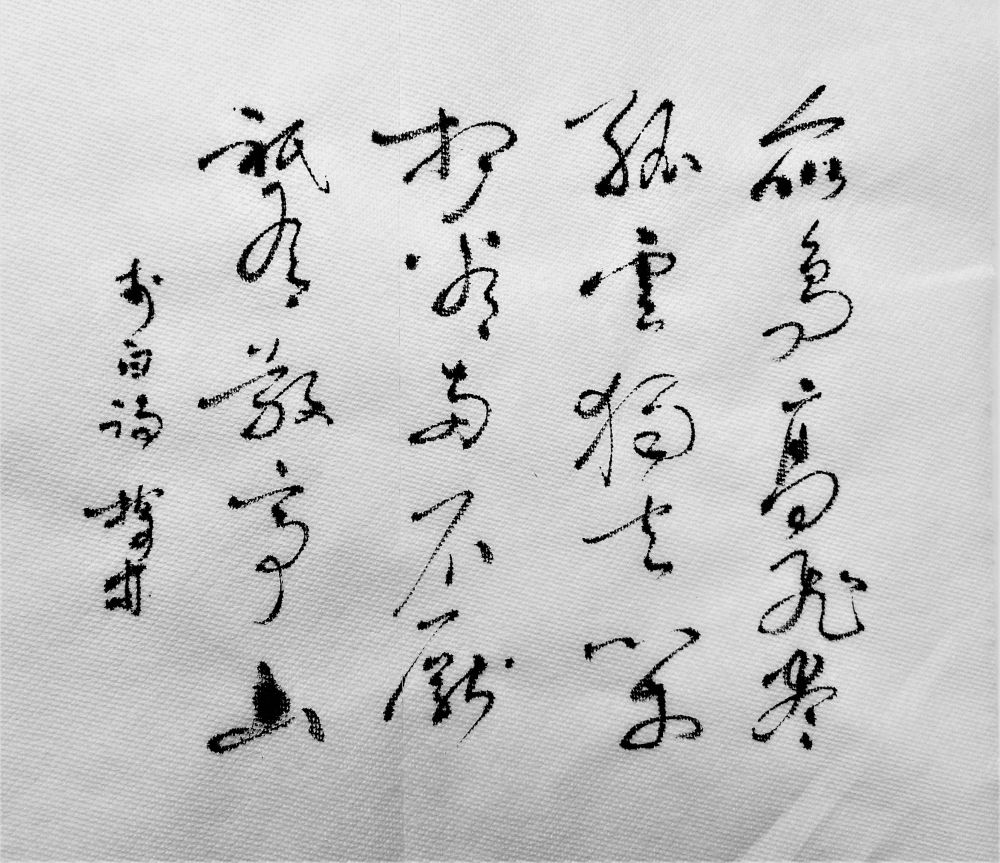 众鳥高飛尽
孤雲獨去閑
相看兩不厭
祇有敬亭山
李白詩